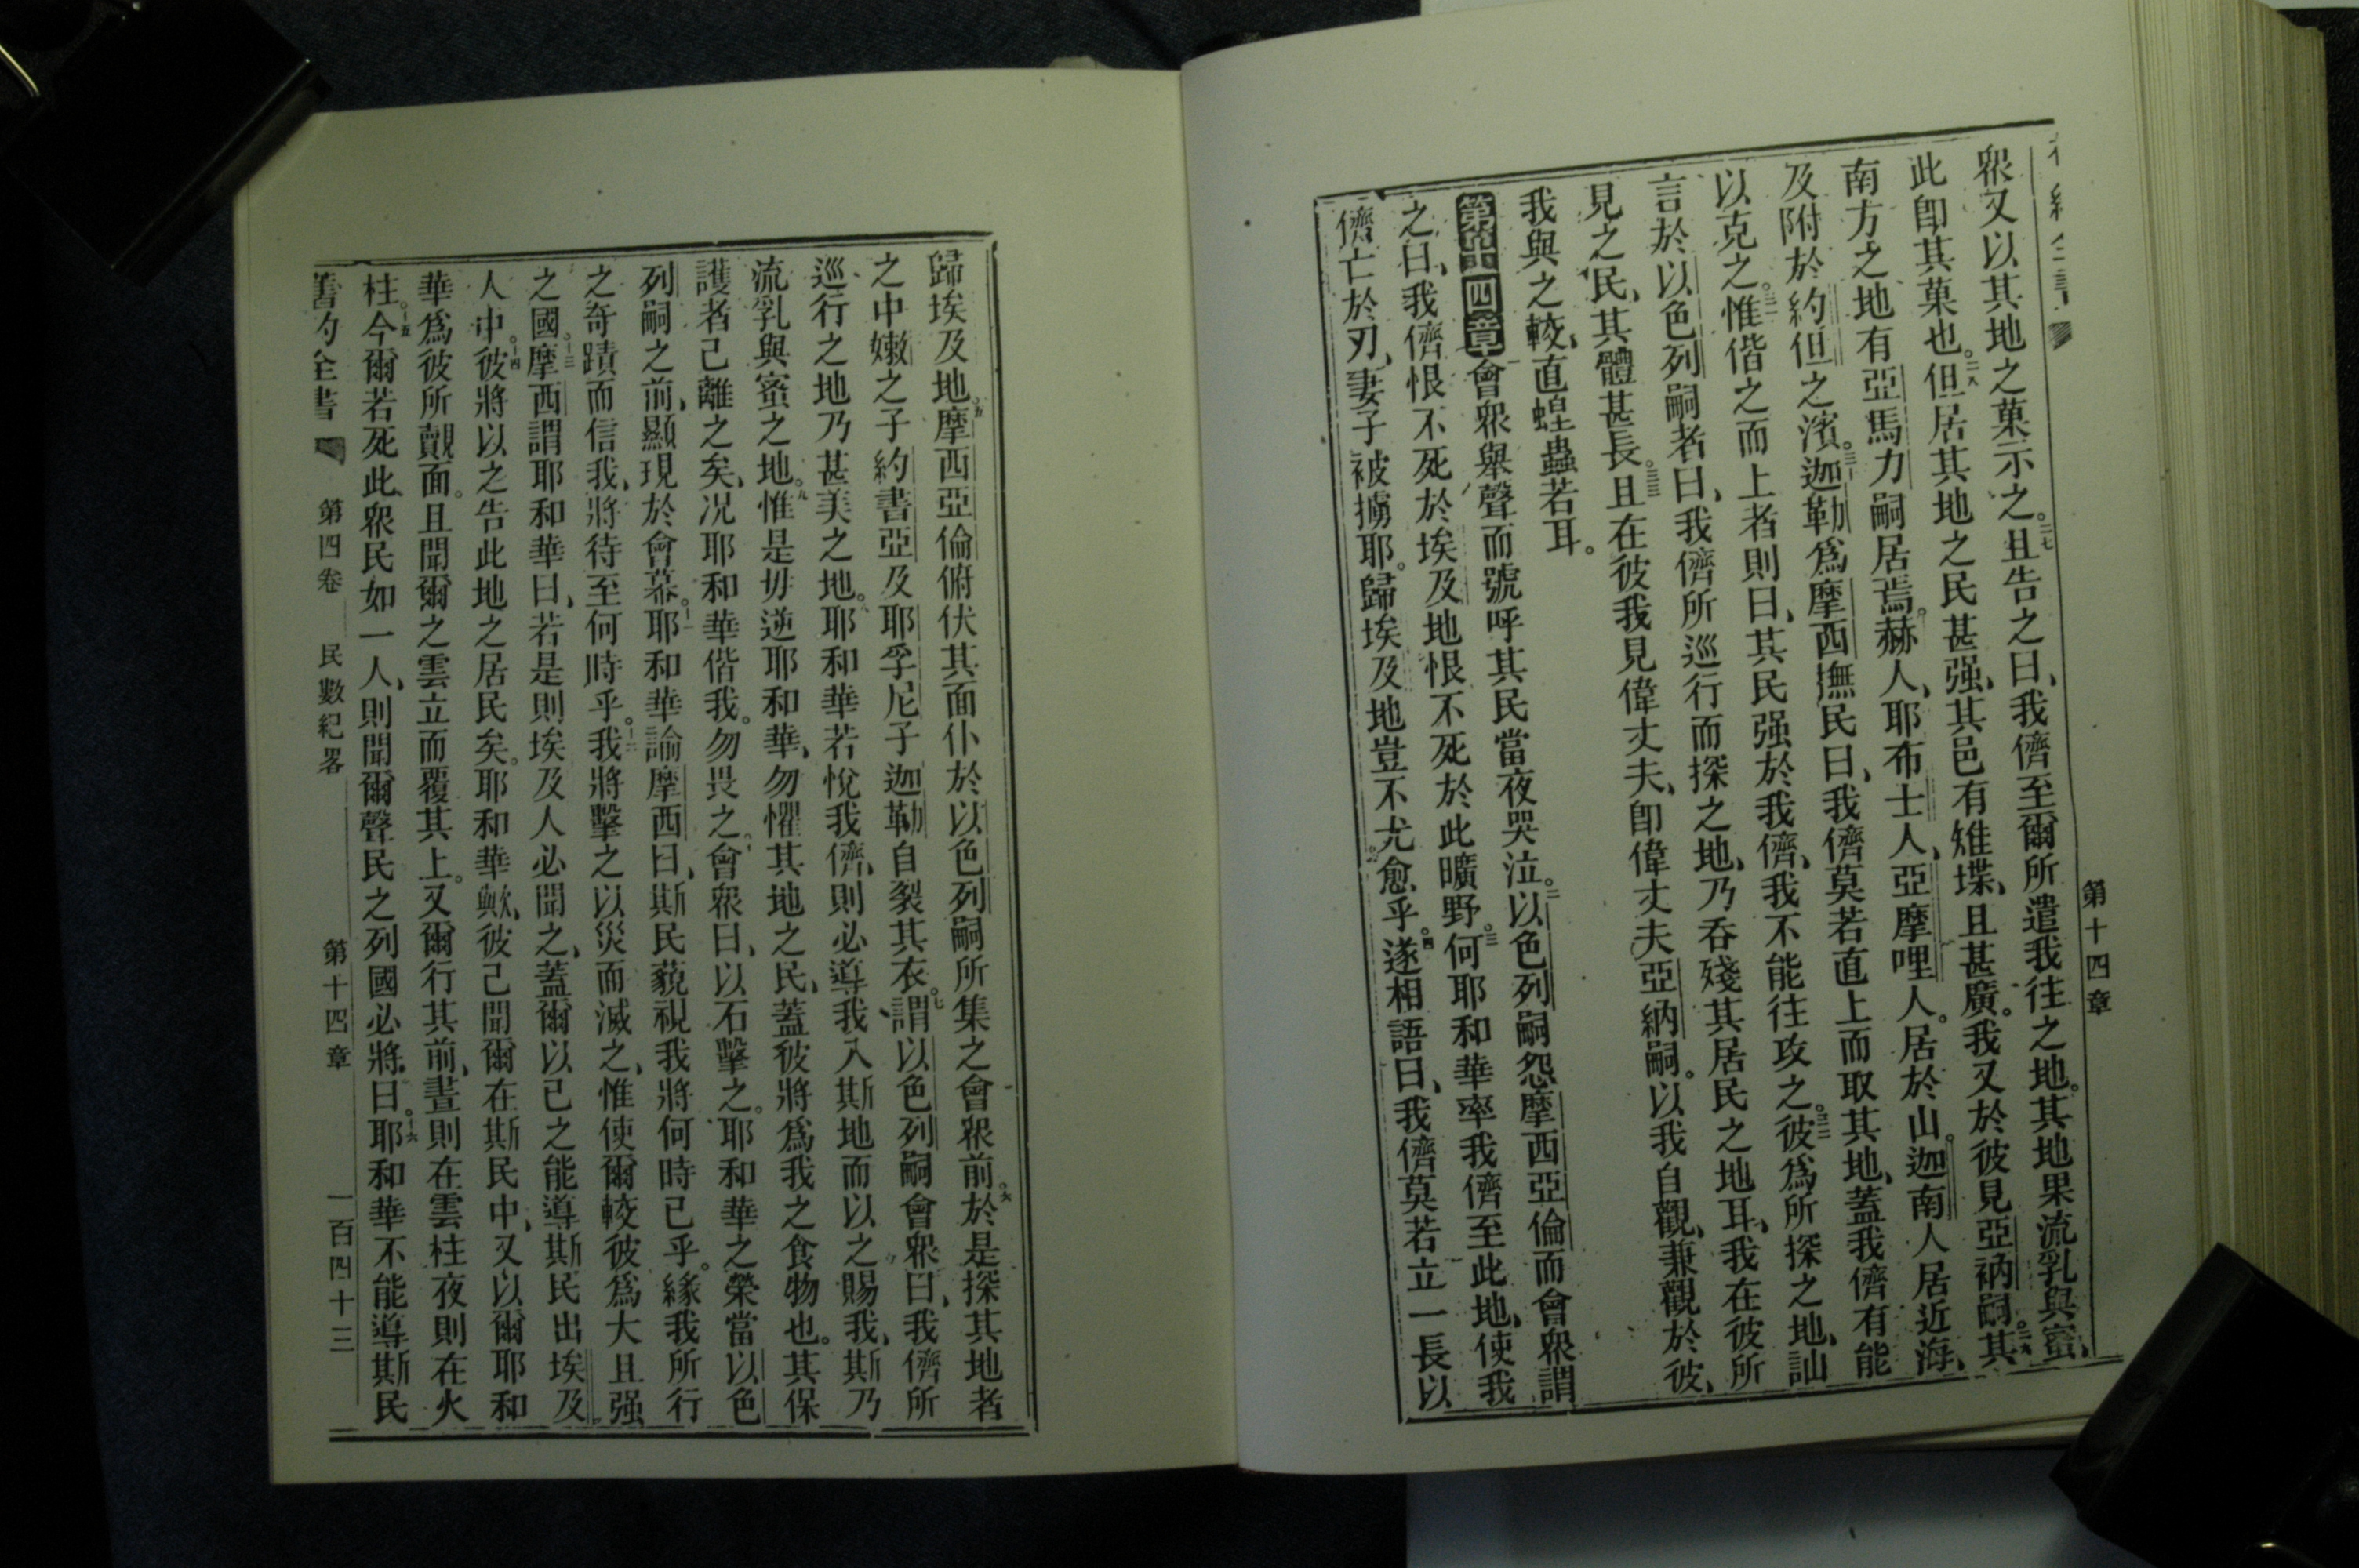 第十四章
眾又以其地之菓示之。二七且告之曰、我儕至爾所遣我往之地。其地果流乳與蜜、
此卽其菓也。二八但居其地之民甚强、其邑有雉堞、且甚廣。我又於彼見亞衲嗣。二九其
南方之地有亞馬力嗣居焉。赫人、耶布士人、亞摩哩人。居於山。迦南人居近海、
及附於約但之濱。三十迦勒爲摩西撫民曰、我儕莫若直上而取其地、蓋我儕有能
以克之。三一惟偕之而上者則曰、其民强於我儕、我不能往攻之。三二彼爲所探之地、訕
言於以色列嗣者曰、我儕所巡行而探之地、乃吞殘其居民之地耳、我在彼所
見之民、其體甚長。三三且在彼我見偉丈夫、卽偉丈夫亞納嗣。以我自觀、兼觀於彼、
我與之較、直蝗蟲若耳。
第十四章會眾舉聲而號呼其民當夜哭泣。二以色列嗣怨摩西亞倫而會眾謂
之曰、我儕恨不死於埃及地恨不死於此曠野。三何耶和華率我儕至此地、使我
儕亡於刃、妻子被擄耶。歸埃及地豈不尤愈乎。四遂相語曰、我儕莫若立一長以
歸埃及地。五摩西亞倫俯伏其面仆於以色列嗣所集之會眾前。六於是探其地者
之中嫩之子約書亞及耶孚尼子迦勒自裂其衣。七謂以色列嗣會眾曰、我儕所
巡行之地乃甚美之地。八耶和華若悅我儕、則必導我入斯地而以之賜我、斯乃
流乳與蜜之地。九惟是毋逆耶和華、勿懼其地之民、蓋彼將爲我之食物也。其保
護者己離之矣、况耶和華偕我。勿畏之。十會眾曰、以石擊之。耶和華之榮當以色
列嗣之前、顯現於會幕。十一耶和華諭摩西曰、斯民藐視我將何時己乎。緣我所行
之奇蹟而信我、將待至何時乎。十二我將擊之以災而滅之、惟使爾較彼爲大且强
之國。十三摩西謂耶和華曰、若是則埃及人必聞之、蓋爾以己之能導斯民出埃及
人中。十四彼將以之告此地之居民矣。耶和華歟、彼己聞爾在斯民中、又以爾耶和
華爲彼所覿面。且聞爾之雲立而覆其上。又爾行其前、晝則在雲柱夜則在火
柱。十五今爾若死此眾民如一人、則聞爾聲民之列國必將曰。十六耶和華不能導斯民
舊約全書 第四卷 民數紀畧 第十四章 一百四十三